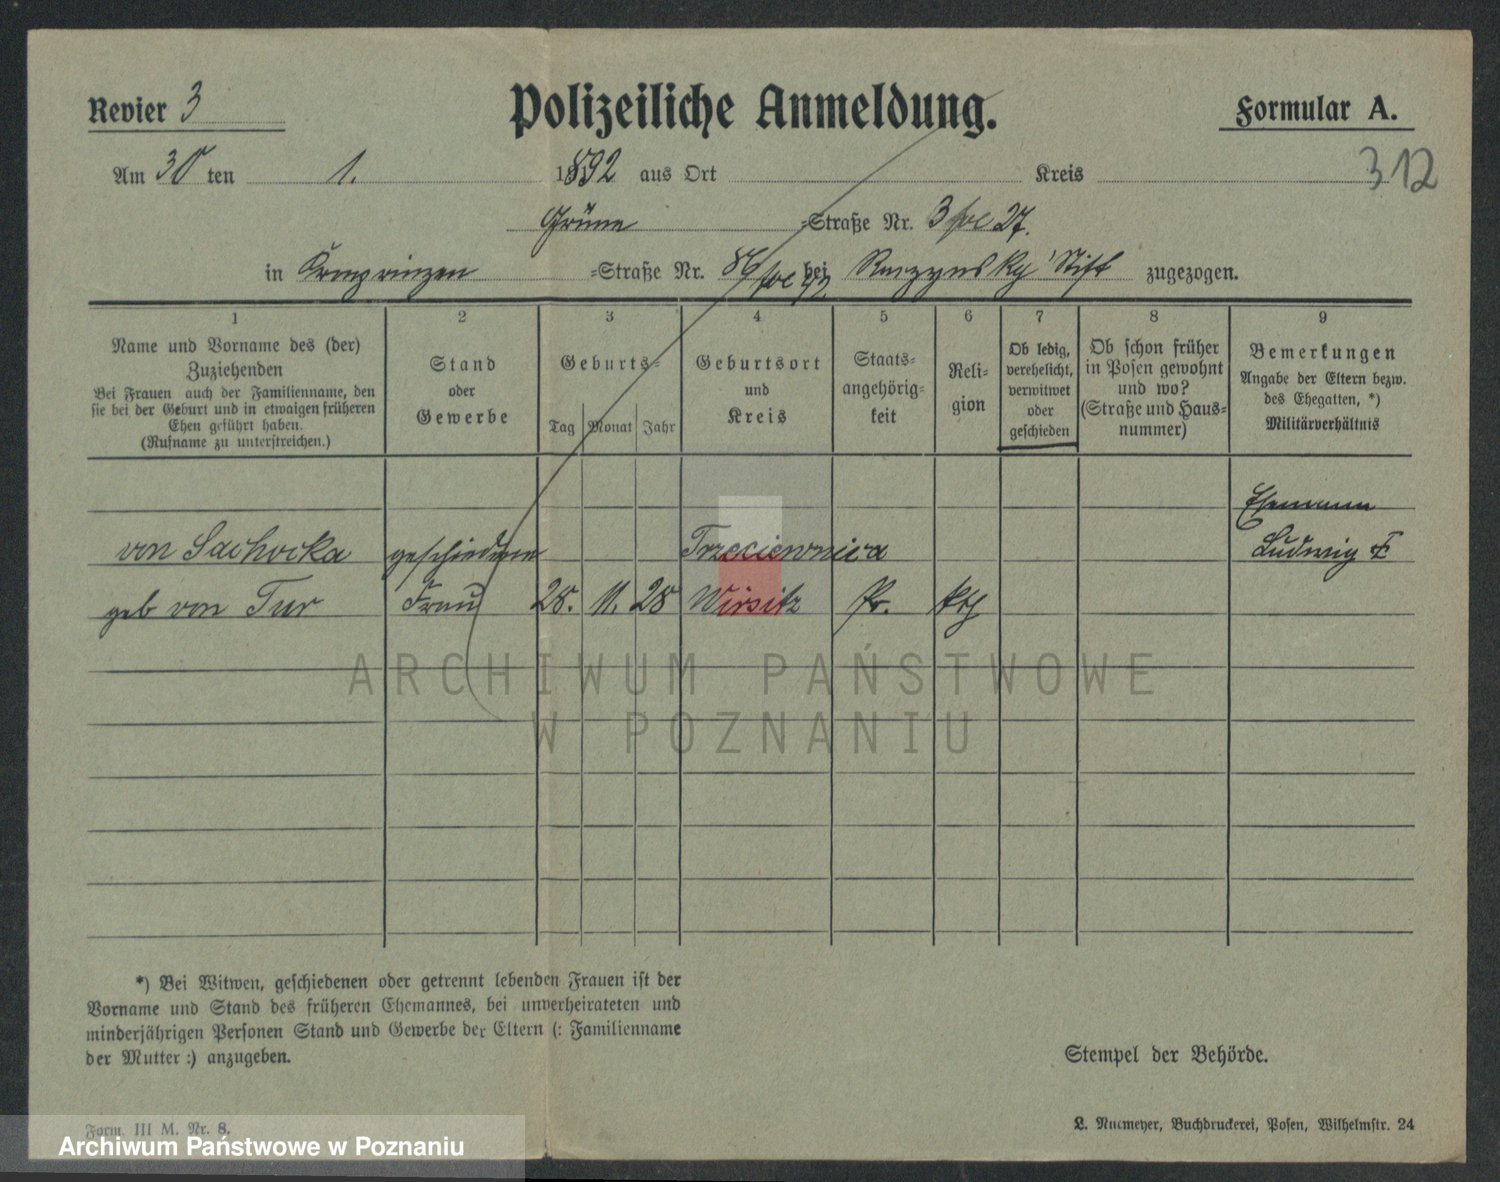 Revier 3
Polizeiliche Anmeldung.
Formular A.
Am 30 ten 1. 1892 aus Ort Kreis
312
Grüne -Straße Nr. 3 27.
in Kronprinzen -Straße Nr. 86 bei Stift zugezogen.
1 2 3 4 5 6 7 8 9
Name und Vorname des (der)
Zuziehenden
Bei Frauen auch der Familienname, den
sie bei der Geburt und in etwaigen früheren
Ehen geführt haben.
(Rufname zu unterstreichen.)
Stand
oder
Gewerbe
Geburts-
Tag Monat Jahr
Geburtsort
und
Kreis
Staats-
angehörig-
keit
Reli-
gion
Ob ledig,
verehelicht,
verwitwet
oder
geschieden
Ob schon früher
in Posen gewohnt
und wo?
(Straße und Haus-
nummer)
Bemerkungen
Angabe der Eltern bezw.
des Ehegatten, *)
Militärverhältnis
Ehemann
von Sachocka geschiedene Trzeciewnica Ludwig
geb von Tur Frau 28. 11. 28 Wirsitz Pr. kth
ARCHIWUM PAŃSTWOWE
W POZNANIU
*) Bei Witwen, geschiedenen oder getrennt lebenden Frauen ist der
Vorname und Stand des früheren Ehemannes, bei unverheirateten und
minderjährigen Personen Stand und Gewerbe der Eltern (: Familienname
der Mutter :) anzugeben.
Stempel der Behörde.
Form. III M. Nr. 8.
Archiwum Państwowe w Poznaniu
L. Niemeyer, Buchdruckerei, Posen, Wilhelmstr. 24